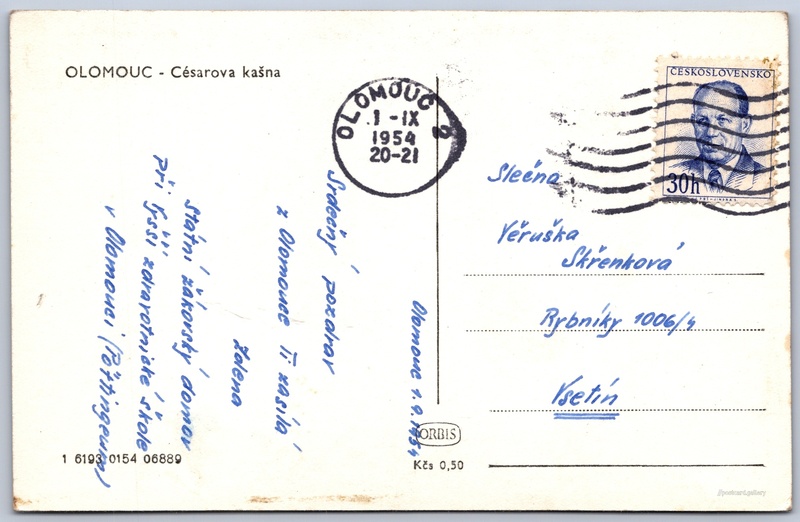 OLOMOUC - Césarova kašna
OLOMOUC 2
1 -IX
1954
20-21
ČESKOSLOVENSKO
30h
Olomouc 1.9.1954
Srdečný pozdrav
z Olomouce Ti zasílá
Zdena
Státní žákovský domov
při vyšší zdravotnické škole
v Olomouci (Pöttingeum)
Slečna
Věruška
Skřenková
Rybníky 1006/4
Vsetín
ORBIS
Kčs 0,50
1 6193 0154 06889